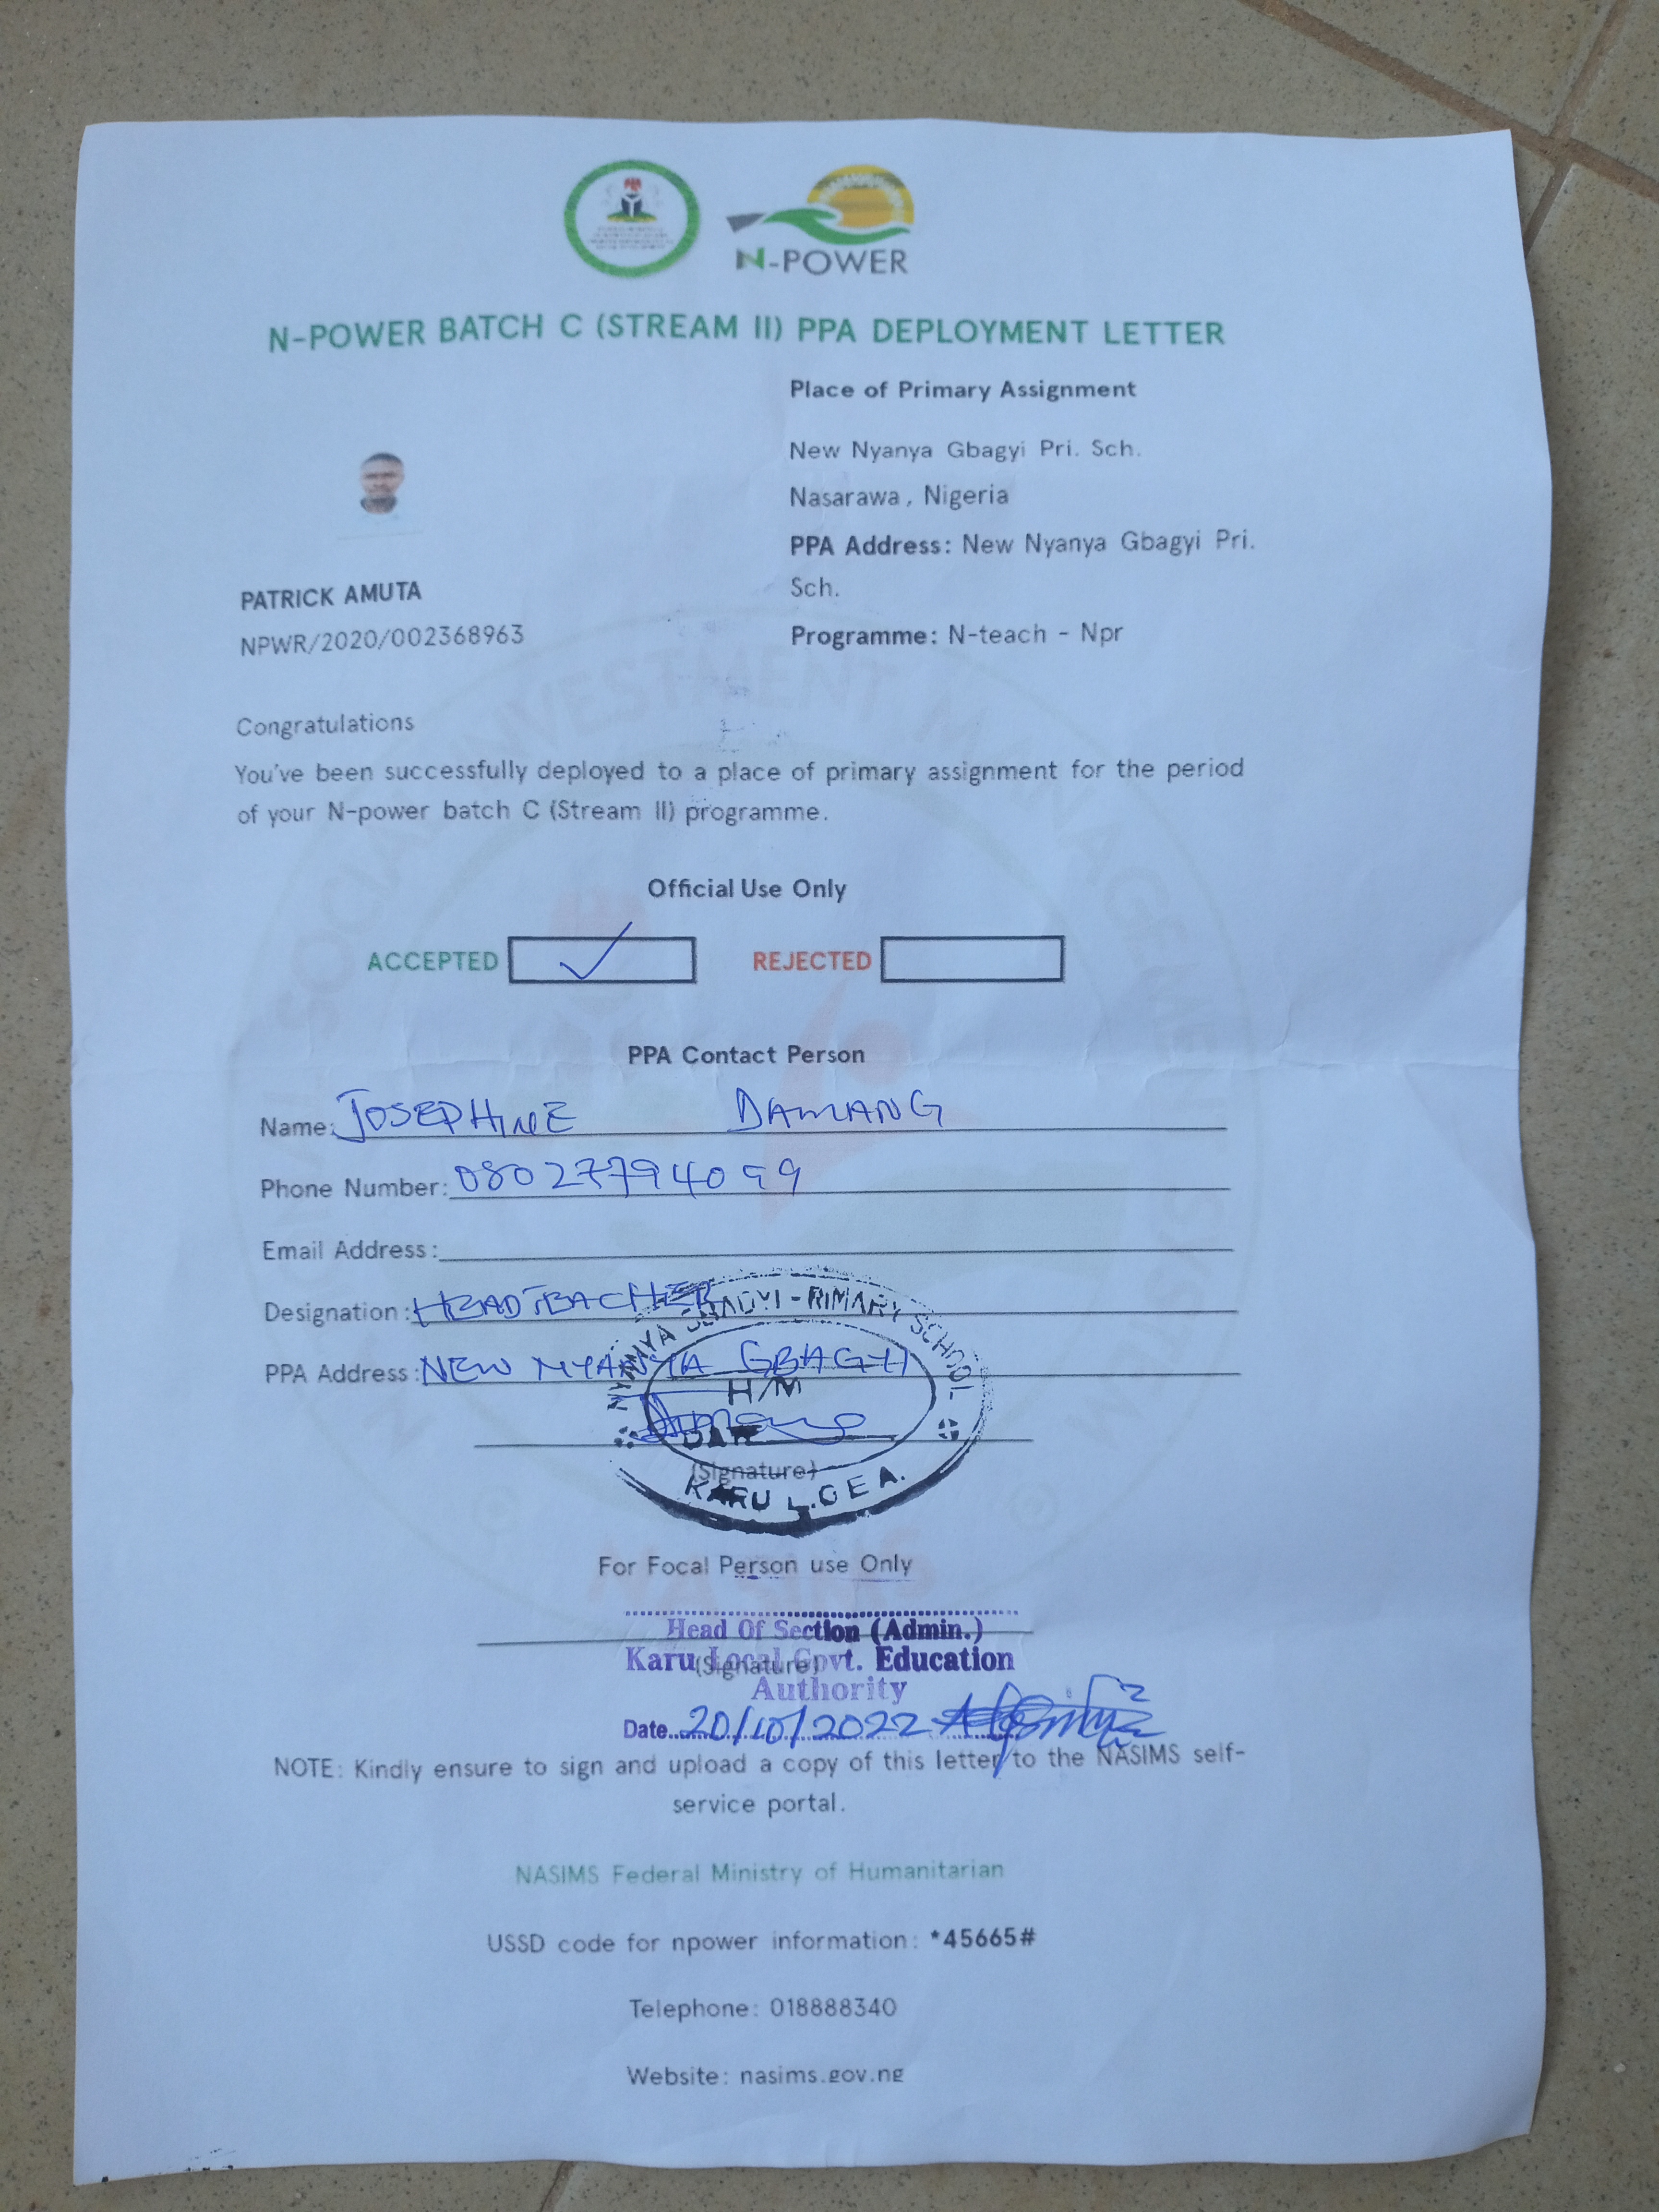 N-POWER
N-POWER BATCH C (STREAM II) PPA DEPLOYMENT LETTER
Place of Primary Assignment
New Nyanya Gbagyi Pri. Sch.
Nasarawa, Nigeria
PPA Address: New Nyanya Gbagyi Pri.
Sch.
Programme: N-teach - Npr
PATRICK AMUTA
NPWR/2020/002368963
Congratulations
You've been successfully deployed to a place of primary assignment for the period
of your N-power batch C (Stream II) programme.
Official Use Only
ACCEPTED
REJECTED
PPA Contact Person
Name: JOSEPHINE DAMANG
Phone Number: 08027794099
Email Address:
Designation: HEADTEACHER
PPA Address: NEW NYANYA GBAGYI
NYANYA GBAGYI PRIMARY SCHOOL
H/M
DATE
(Signature)
KARU L.G.E.A.
For Focal Person use Only
Head Of Section (Admin.)
Karu Local Govt. Education
(Signature)
Authority
Date 20/10/2022
NOTE: Kindly ensure to sign and upload a copy of this letter to the NASIMS self-
service portal.
NASIMS Federal Ministry of Humanitarian
USSD code for npower information: *45665#
Telephone: 018888340
Website: nasims.gov.ng